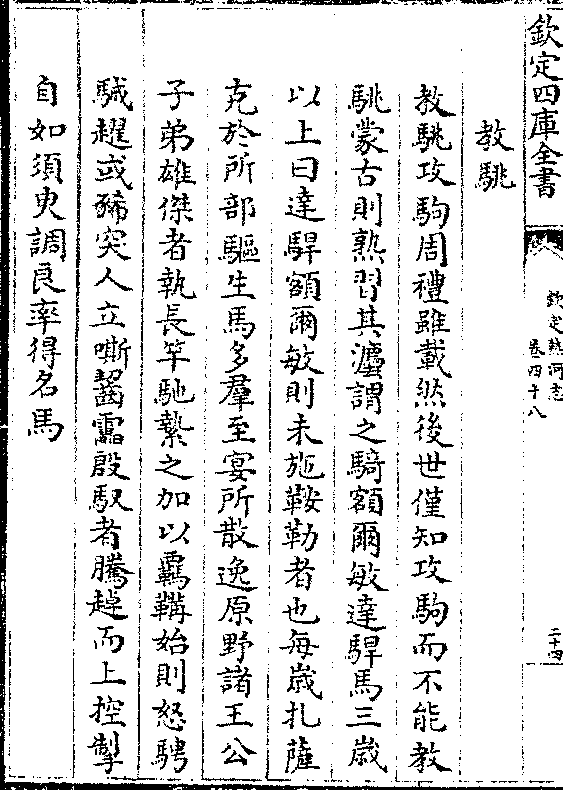 欽定四庫全書
欽定熱河志
卷四十八
二十四
教駣
教駣攻駒周禮雖載然後世僅知攻駒而不能教
駣蒙古則熟習其灋謂之騎額爾敏達騂馬三歲
以上曰達騂額爾敏則未施鞍勒者也每歲扎薩
克於所部驅生馬多羣至宴所散逸原野諸王公
子弟雄傑者執長竿馳縶之加以羈鞲始則怒騁
駴趯或豨突人立嘶齧靁殷馭者騰趠而上控掣
自如須臾調良率得名馬